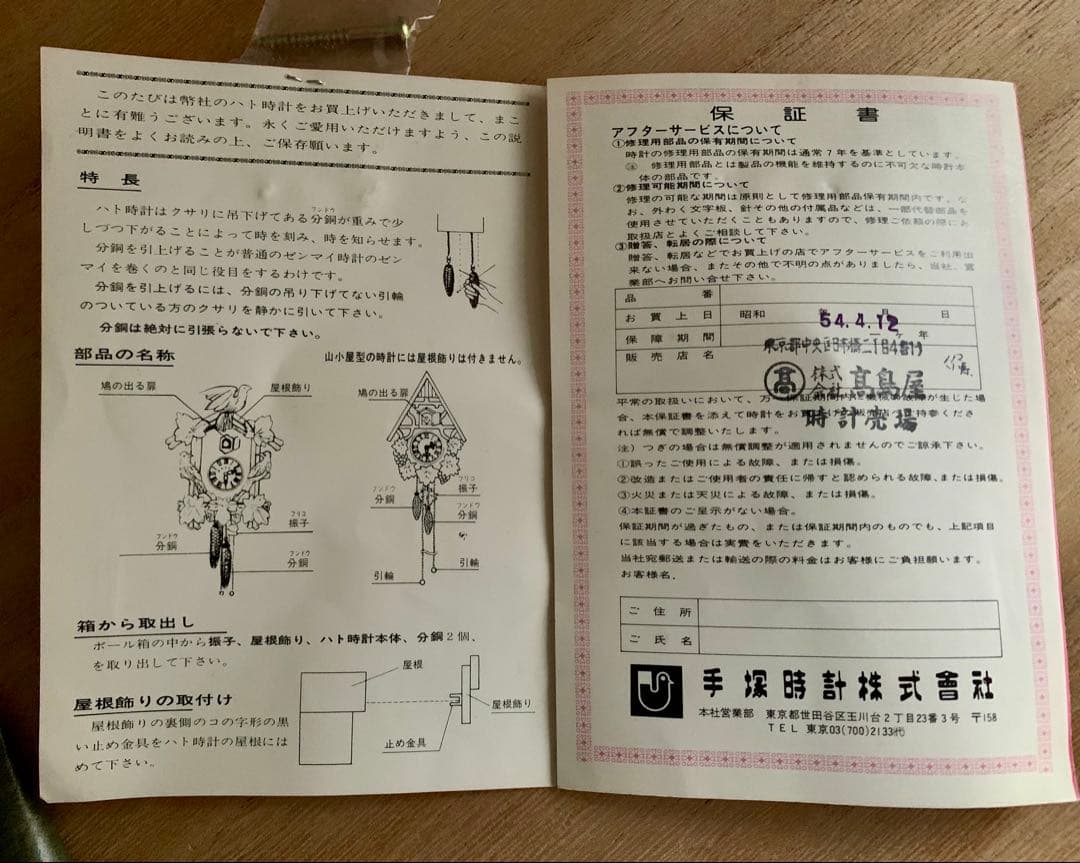 このたびは幣社のハト時計をお買上げいただきまして、まこ
とに有難うございます。永くご愛用いただけますよう、この説
明書をよくお読みの上、ご保存願います。
特長
フンドウ
ハト時計はクサリに吊下げてある分銅が重みで少
しづつ下がることによって時を刻み、時を知らせます。
分銅を引上げることが普通のゼンマイ時計のゼン
マイを巻くのと同じ役目をするわけです。
分銅を引上げるには、分銅の吊り下げてない引輪
のついている方のクサリを静かに引いて下さい。
分銅は絶対に引張らないで下さい。
部品の名称
山小屋型の時計には屋根飾りは付きません。
鳩の出る扉
屋根飾り
フリコ
振子
フンドウ
分銅
フンドウ
分銅
鳩の出る扉
フリコ
振子
フンドウ
分銅
フンドウ
分銅
引輪
引輪
箱から取出し
ボール箱の中から振子、屋根飾り、ハト時計本体、分銅2個、
を取り出して下さい。
屋根飾りの取付け
屋根飾りの裏側のコの字形の黒
い止め金具をハト時計の屋根には
めて下さい。
屋根
屋根飾り
止め金具
保証書
アフターサービスについて
①修理用部品の保有期間について
時計の修理用部品の保有期間は通常7年を基準としています。
修理用部品とは製品の機能を維持するのに不可欠な時計本
体の部品です。
②修理可能期間について
修理の可能な期間は原則として修理用部品保有期間内です。な
お、外わく文字板、針その他の付属品などは、一部代替部品を
使用させていただくこともありますので、修理ご依頼の際にお
取扱店とよくご相談して下さい。
③贈答、転居の際について
贈答、転居などでお買上げの店でアフターサービスをご利用出
来ない場合、またその他で不明の点がありましたら、当社、営
業部へお問い合せ下さい。
品番
お買上日 昭和 年 月 日
54.4.12
保障期間 一ヶ年
販売店名
東京都中央区日本橋二丁目4番1号
株式会社 髙島屋
時計売場
平常の取扱いにおいて、万一保証期間内に機械の故障が生じた場
合、本保証書を添えて時計をお買上げの販売店へご持参くださ
れば無償で調整いたします。
注）つぎの場合は無償調整が適用されませんのでご諒承下さい。
①誤ったご使用による故障、または損傷。
②改造またはご使用者の責任に帰すと認められる故障、または損傷。
③火災または天災による故障、または損傷。
④本証書のご呈示がない場合。
保証期間が過ぎたもの、または保証期間内のものでも、上記項目
に該当する場合は実費をいただきます。
当社宛郵送または輸送の際の料金はお客様にご負担願います。
お客様名.
ご住所
ご氏名
手塚時計株式會社
本社営業部 東京都世田谷区玉川台2丁目23番3号 〒158
TEL 東京03(700)2133㈹